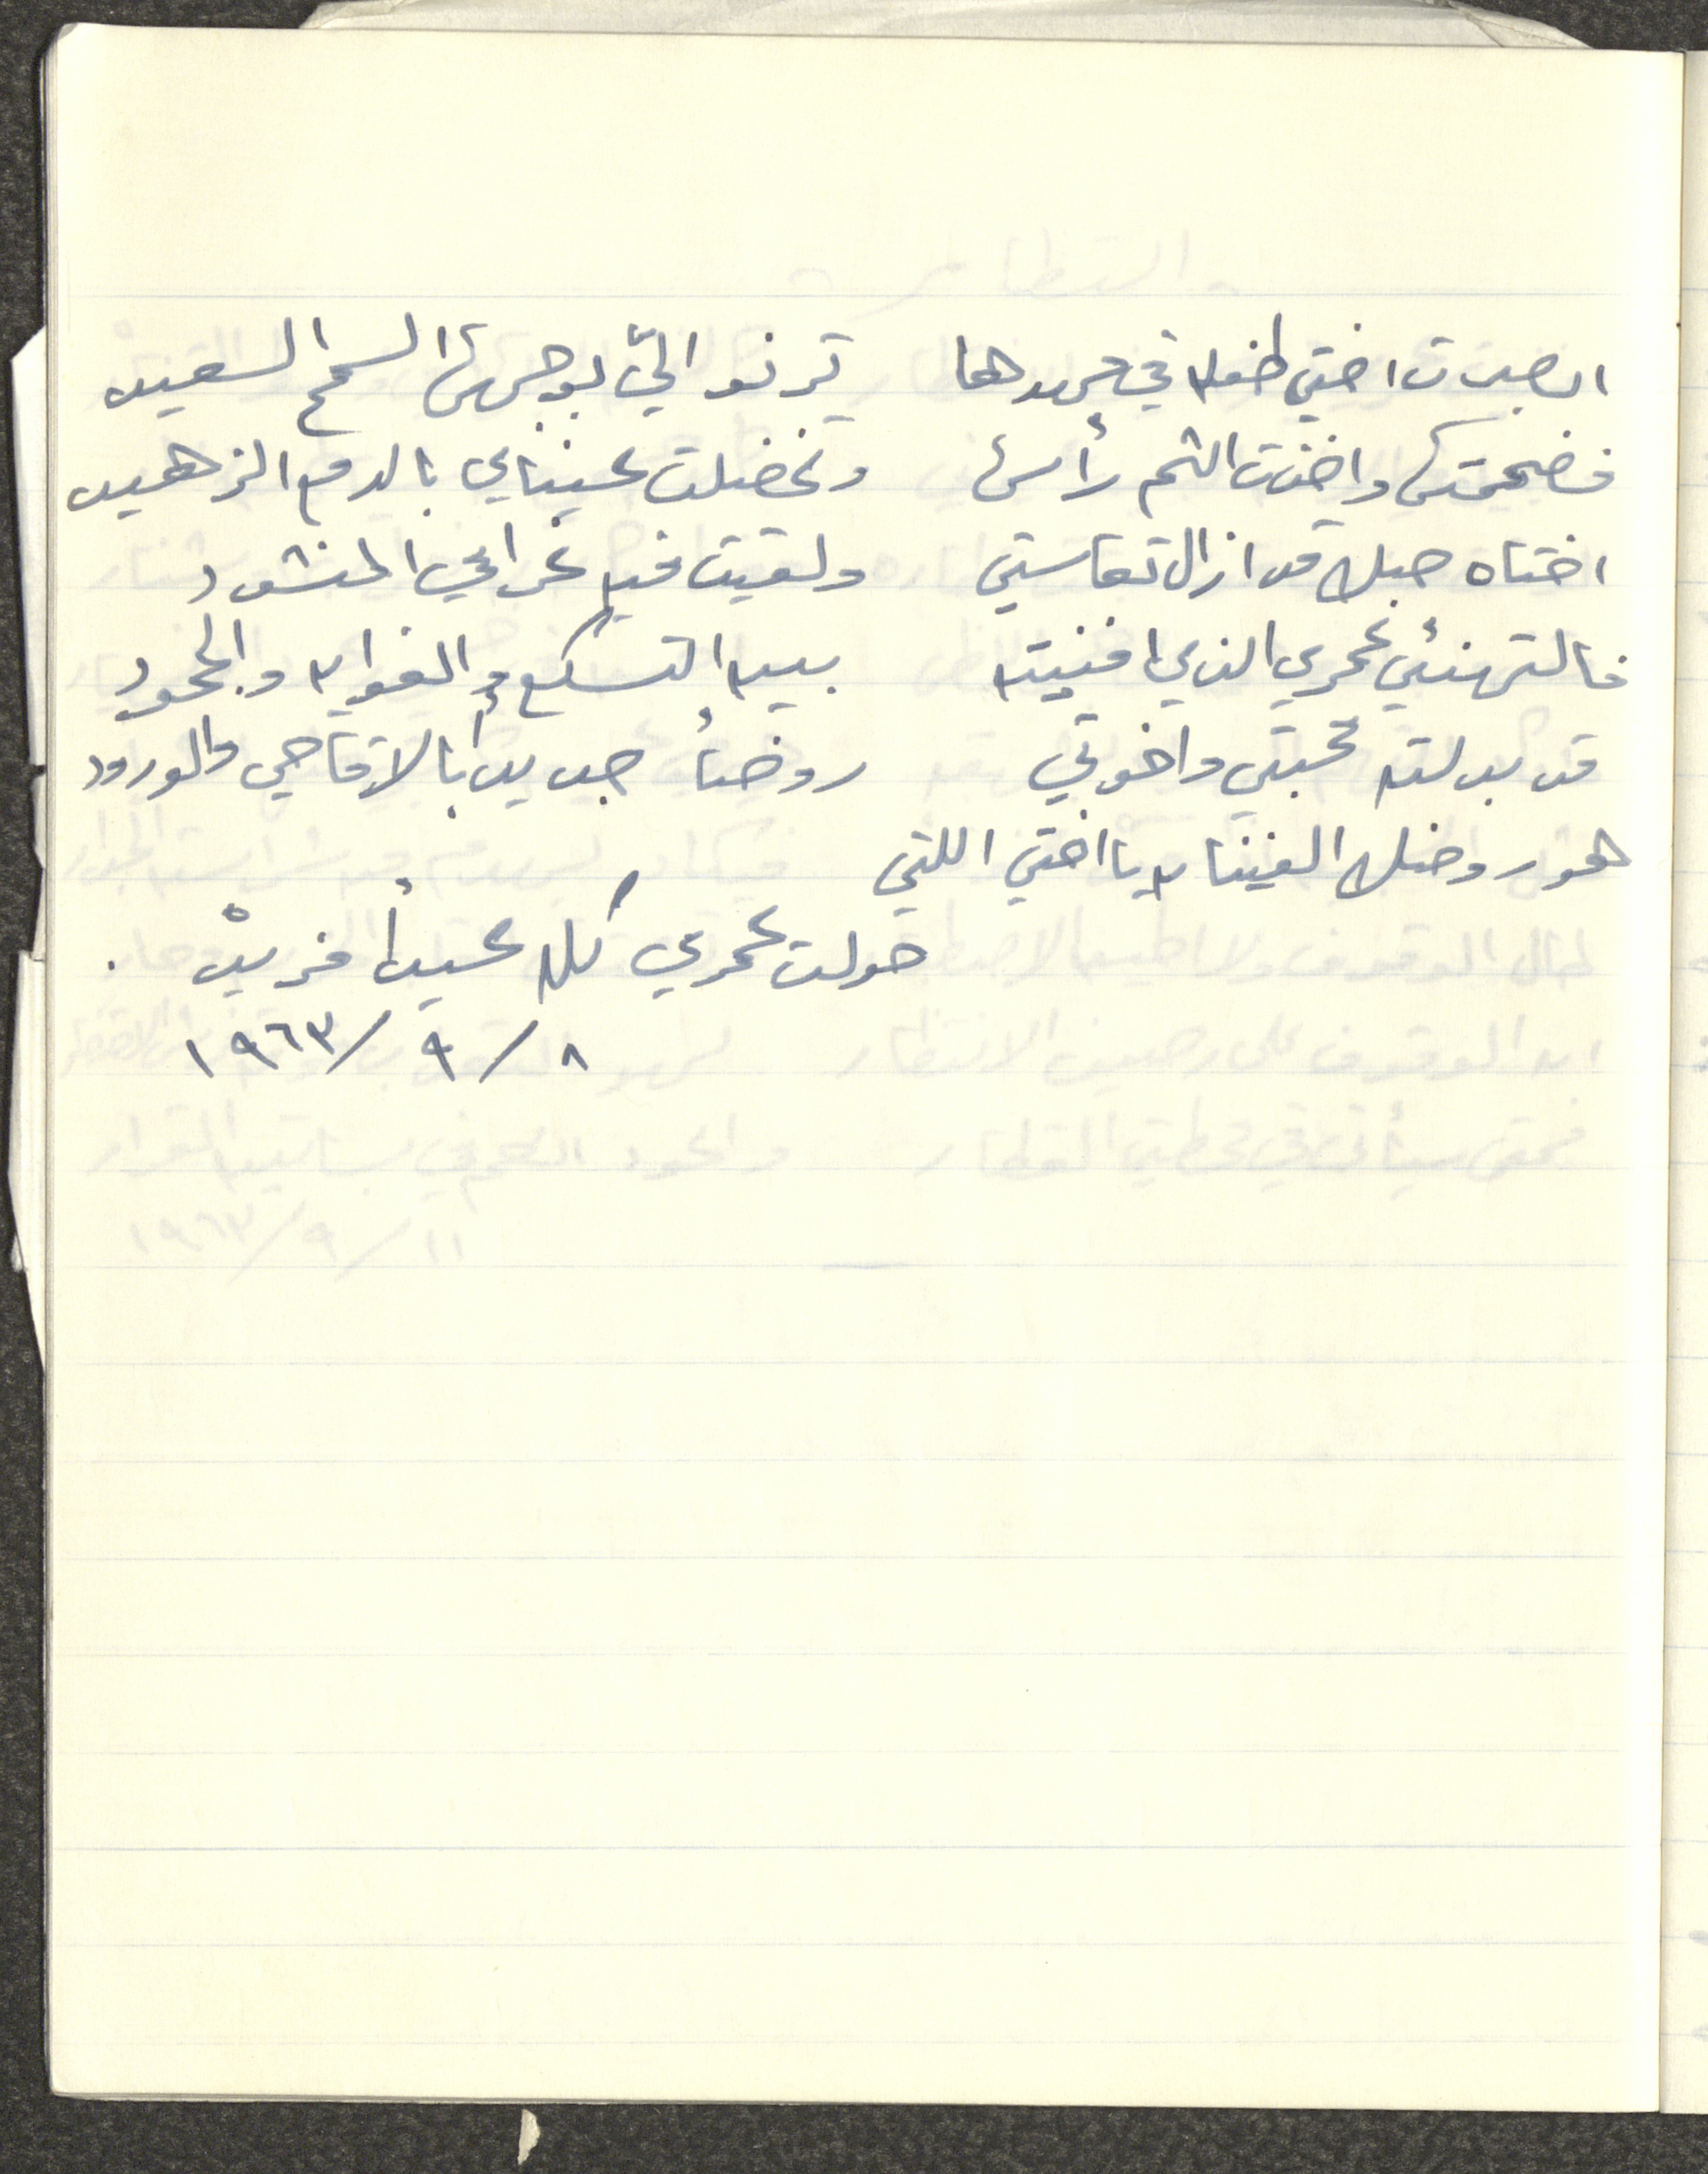 ابصرت اختي طفلة في مهدها ترنو اليّ بوجهها السمح السعيد
فضممتها واخذت الثم رأسها وتخضلت عيناي بالدمع الزهيد
اختاه حبك قد ازال تعاستي ولقيت فيه غرامي المنشود
فالتهنئي عمري الذي افنيته بين التسكع والغواية والجحود
قد بدلته محبتي واخوتي روضاً جديداً بالاقاحي والورود
هو روضك الفينان يا اختي اللتي
حولت عمري كله عيداً فريدْ .
٨ / ٩ / ١٩٦٣